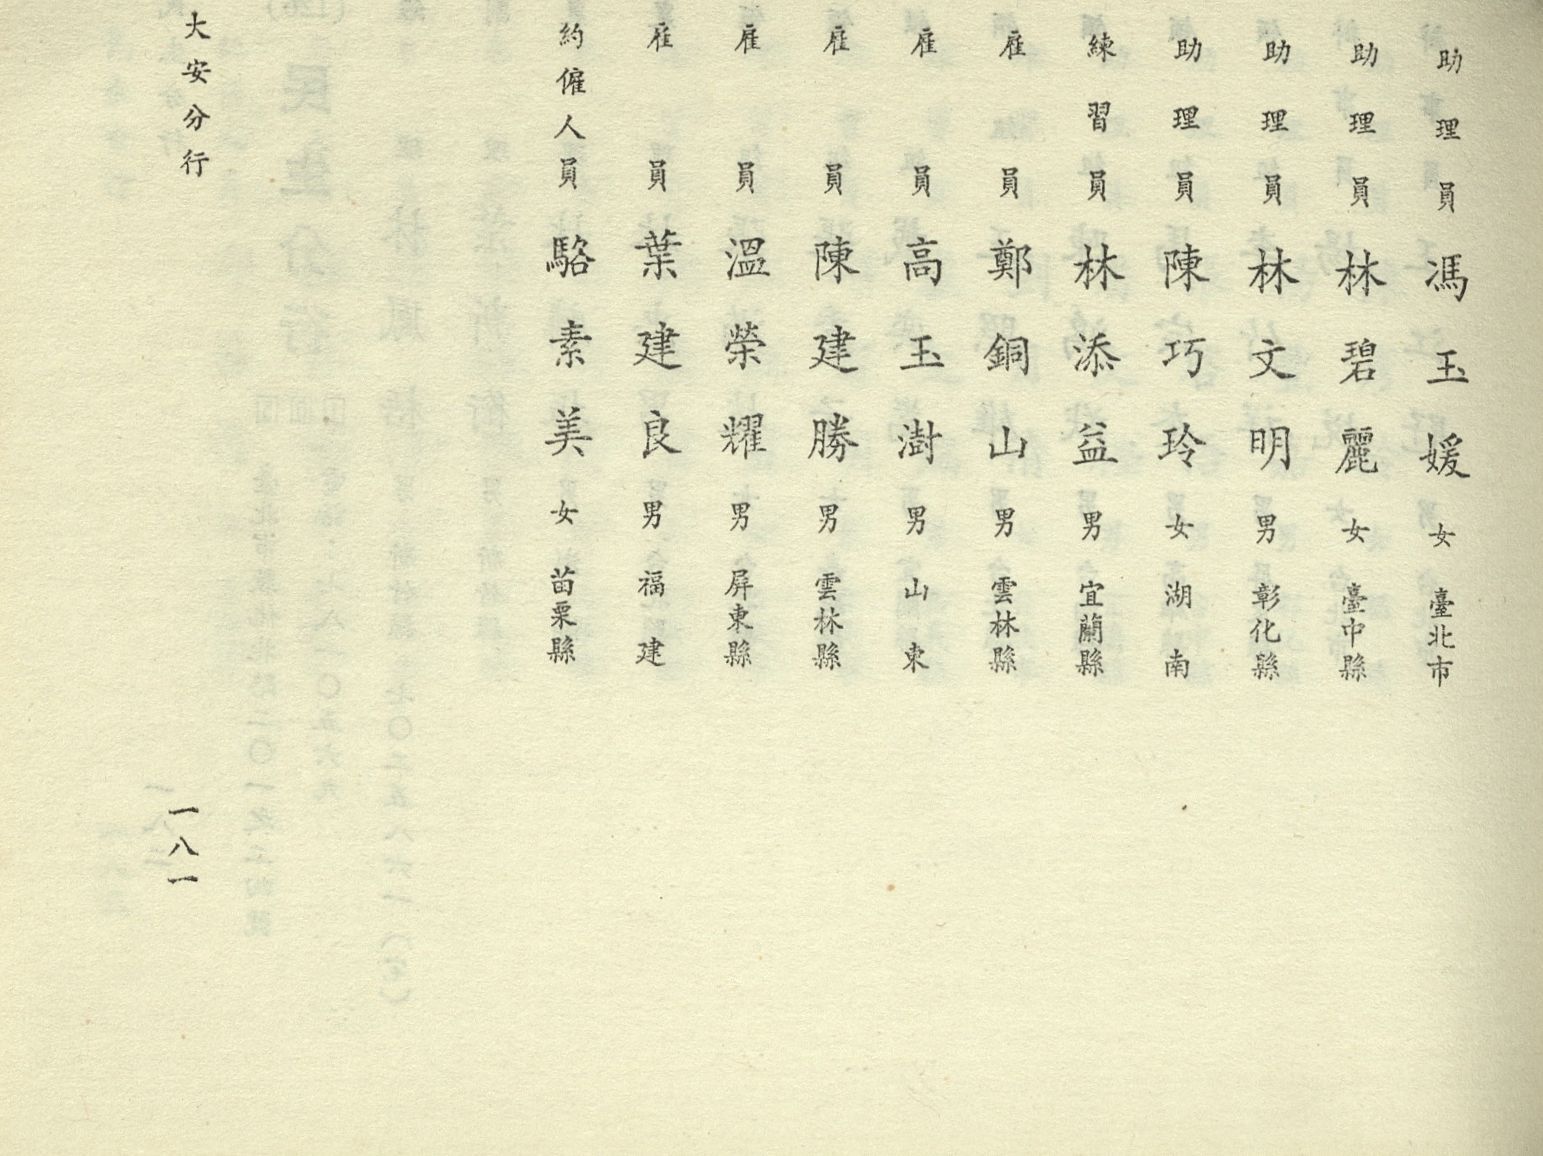 助理員 馮玉媛 女 臺北市
助理員 林碧麗 女 臺中縣
助理員 林文明 男 彰化縣
助理員 陳巧玲 女 湖南
練習員 林添益 男 宜蘭縣
雇員 鄭銅山 男 雲林縣
雇員 高玉澍 男 山東
雇員 陳建勝 男 雲林縣
雇員 溫榮耀 男 屏東縣
雇員 葉建良 男 福建
約僱人員 駱素美 女 苗栗縣
大安分行
一八一